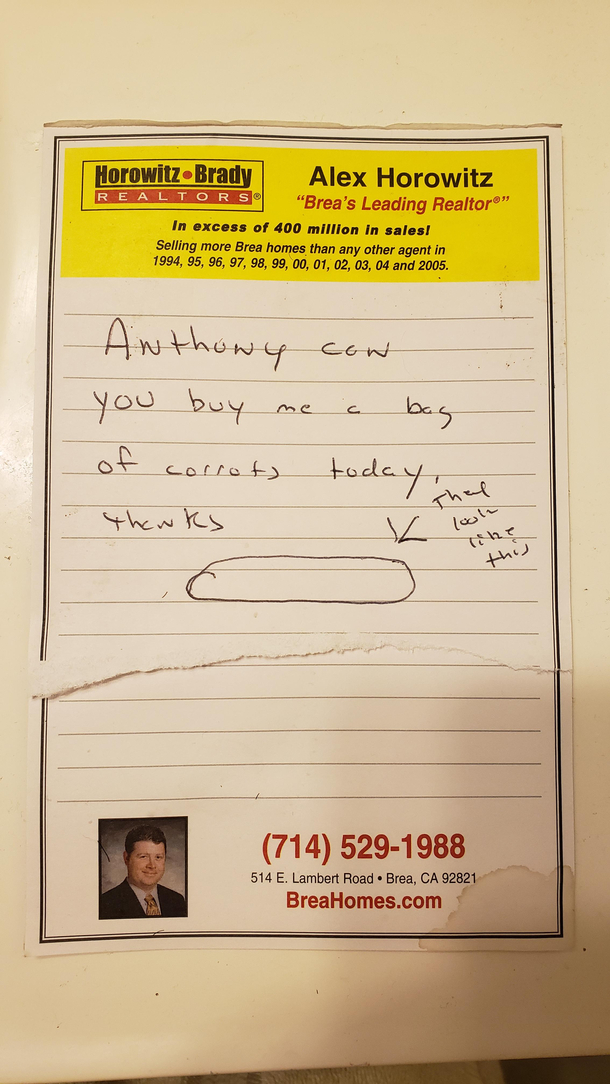 Horowitz•Brady
REALTORS®
Alex Horowitz
"Brea's Leading Realtor®"
In excess of 400 million in sales!
Selling more Brea homes than any other agent in
1994, 95, 96, 97, 98, 99, 00, 01, 02, 03, 04 and 2005.
Anthony can
you buy me a bag
of corrots today,
thanks
That
look
like
this
(714) 529-1988
514 E. Lambert Road • Brea, CA 92821
BreaHomes.com